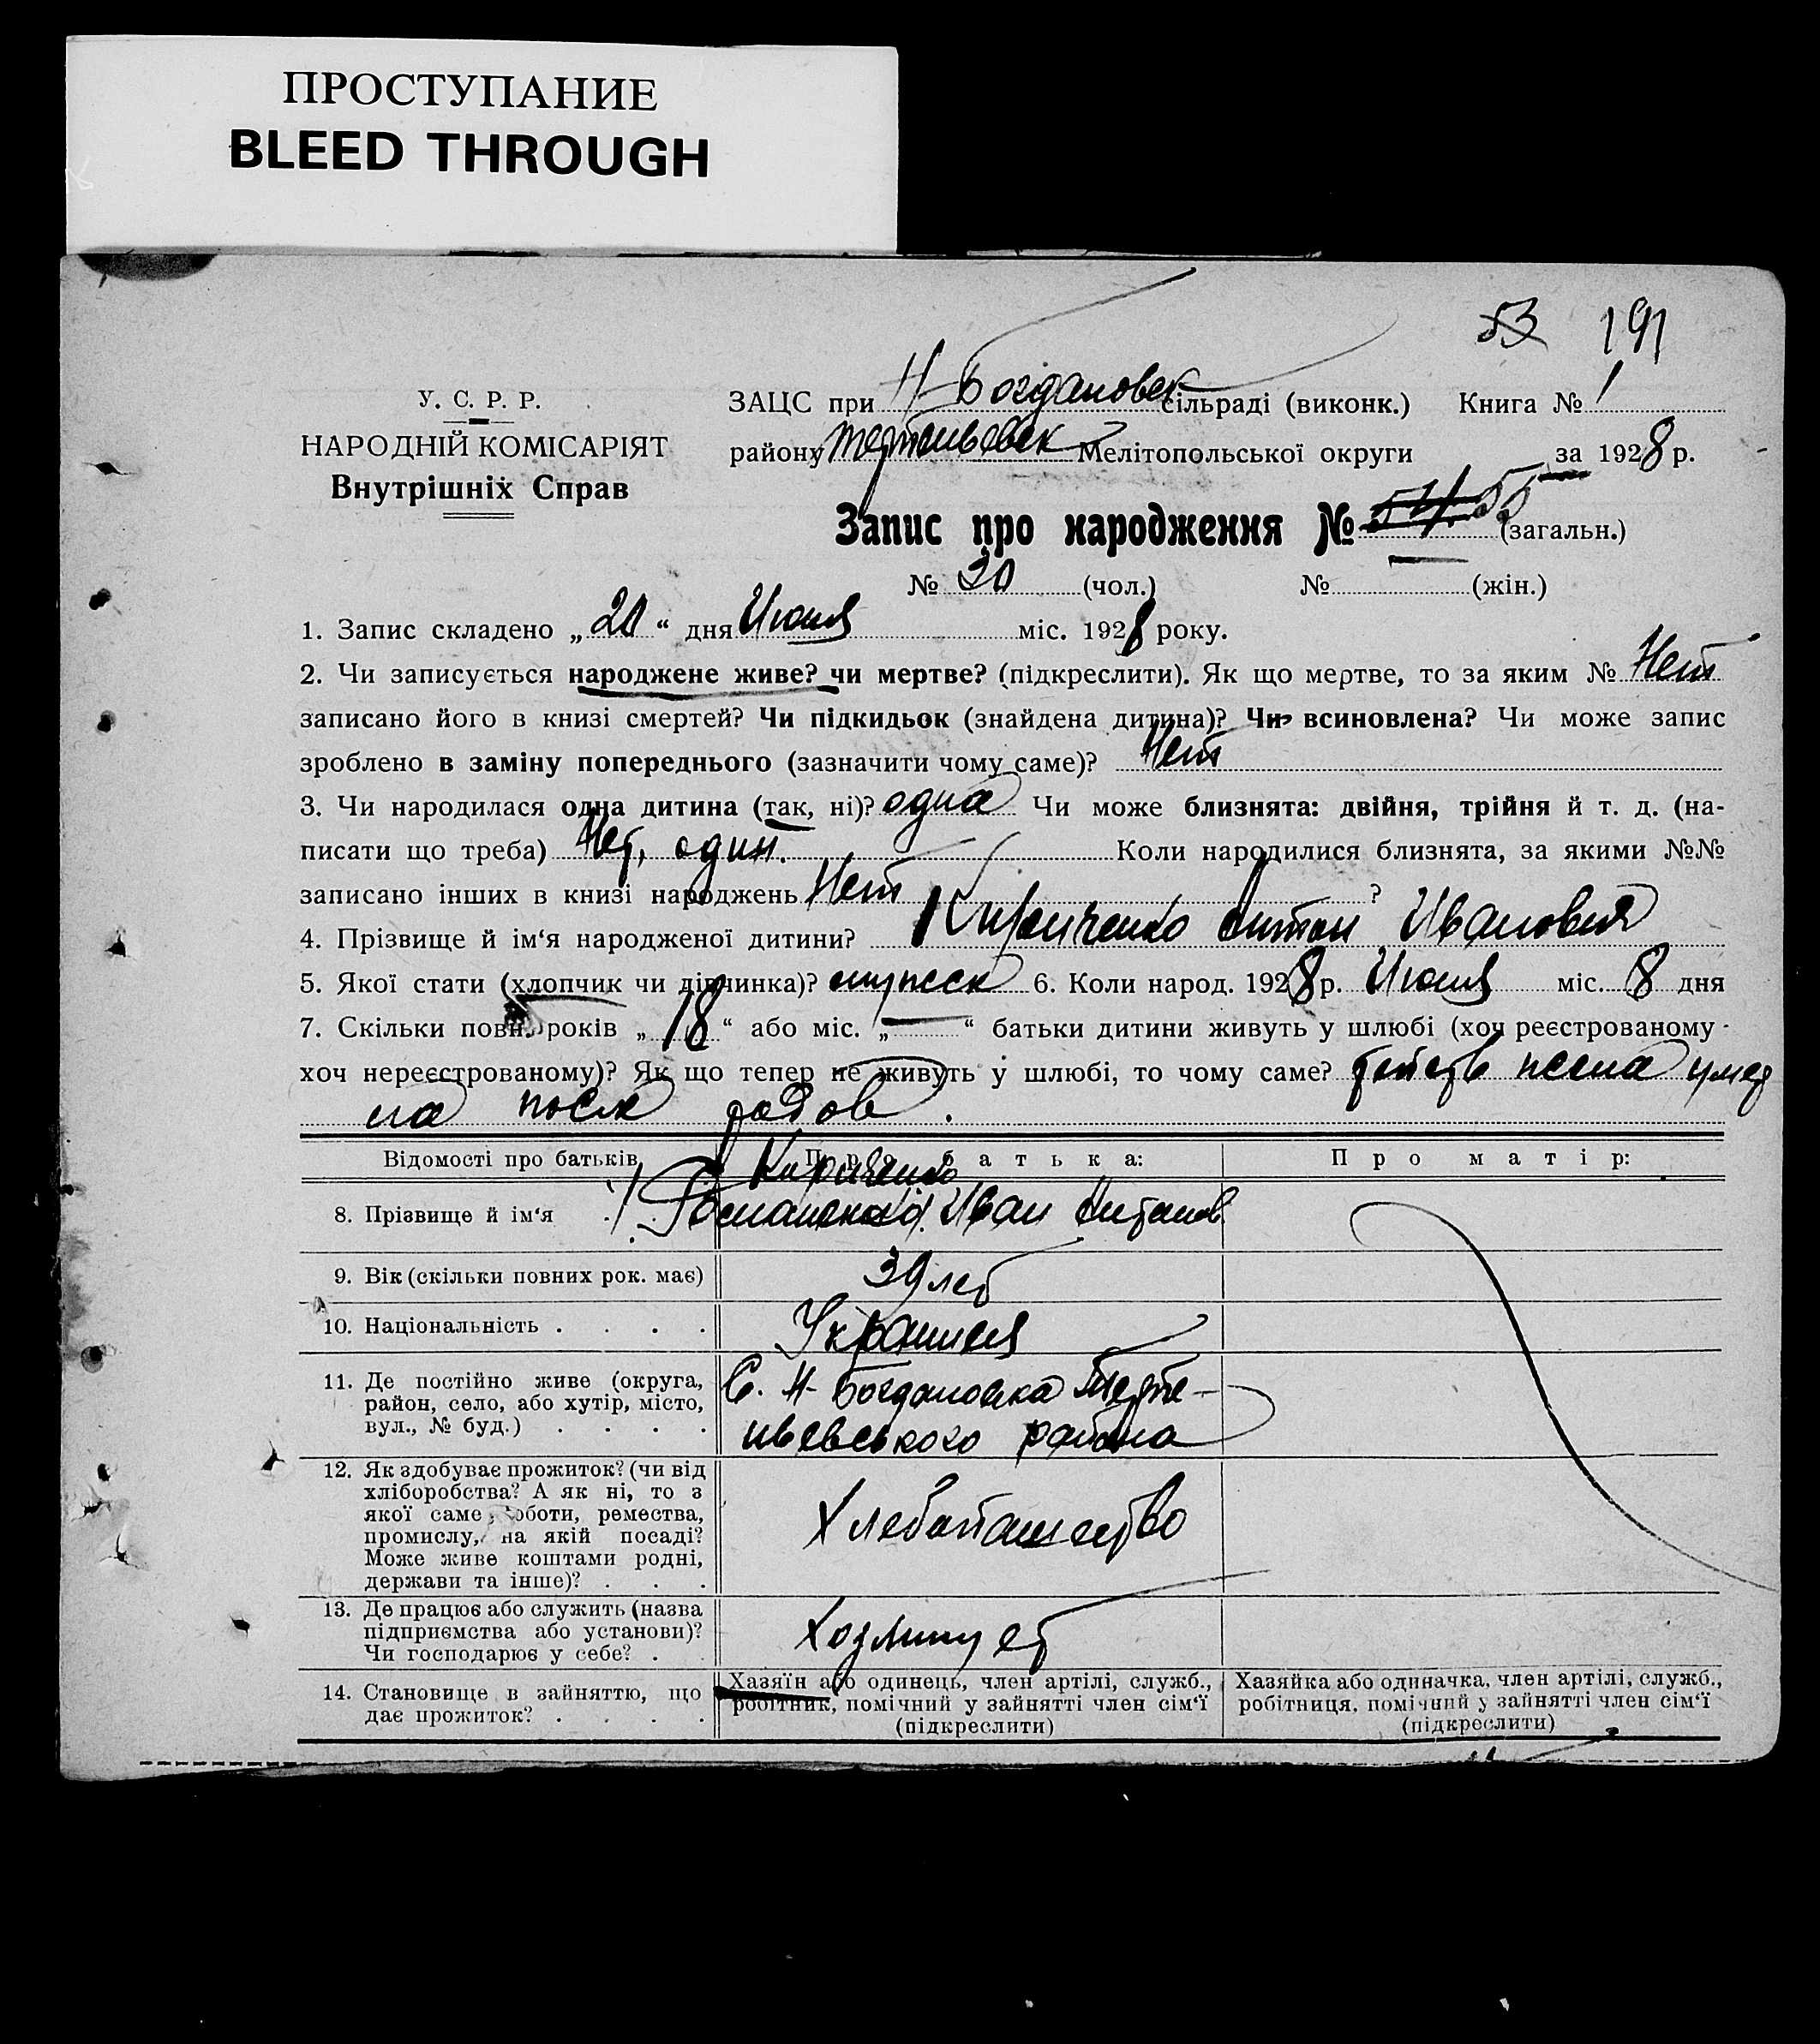 ПРОСТУПАНИЕ
BLEED THROUGH
53 191
У. С. Р. Р.
НАРОДНІЙ КОМІСАРІЯТ
Внутрішніх Справ
ЗАЦС при Н-Богдановск сільраді (виконк.) Книга № 1
району Мелітопольської округи за 1928 р.
Запис про народження № 54 55 (загальн.)
№ 30 (чол.) № — (жін.)
1. Запис складено „20“ дня Июня міс. 1928 року.
2. Чи записується народжене живе? чи мертве? (підкреслити). Як що мертве, то за яким № Нет
записано його в книзі смертей? Чи підкидьок (знайдена дитина)? Чи всиновлена? Чи може запис
зроблено в заміну попереднього (зазначити чому саме)? Нет
3. Чи народилася одна дитина (так, ні)? одна Чи може близнята: двійня, трійня й т. д. (на-
писати що треба) Нет, один. Коли народилися близнята, за якими №№
записано інших в книзі народжень Нет ?
4. Прізвище й ім‘я народженої дитини? Кириченко Антон Иванович
5. Якої стати (хлопчик чи дівчинка)? мужеск 6. Коли народ. 1928 р. Июня міс. 8 дня
7. Скільки повн. років „18“ або міс. „—“ батьки дитини живуть у шлюбі (хоч реєстрованому -
хоч нереєстрованому)? Як що тепер не живуть у шлюбі, то чому саме? жена умер
ла после родов.
Відомості про батьків Про батька: Про матір:
Кириченко
8. Прізвище й ім‘я . . Иван Антонов
9. Вік (скільки повних рок. має) 39 лет
10. Національність . . . . Украинец
11. Де постійно живе (округа,
район, село, або хутір, місто,
вул., № буд.) . . . .
С. Н-Богдановка
района
12. Як здобуває прожиток? (чи від
хліборобства? А як ні, то з
якої саме роботи, ремества,
промислу, на якій посаді?
Може живе коштами родні,
держави та інше)? . . .
Хлебопашество
13. Де працює або служить (назва
підприємства або установи)?
Чи господарює у себе? .
Хозяинует
14. Становище в зайняттю, що
дає прожиток? . . . .
Хазяїн або одинець, член артілі, служб.,
робітник, помічний у зайнятті член сім‘ї
(підкреслити)
Хазяйка або одиначка, член артілі, служб.,
робітниця, помічний у зайнятті член сім‘ї
(підкреслити)